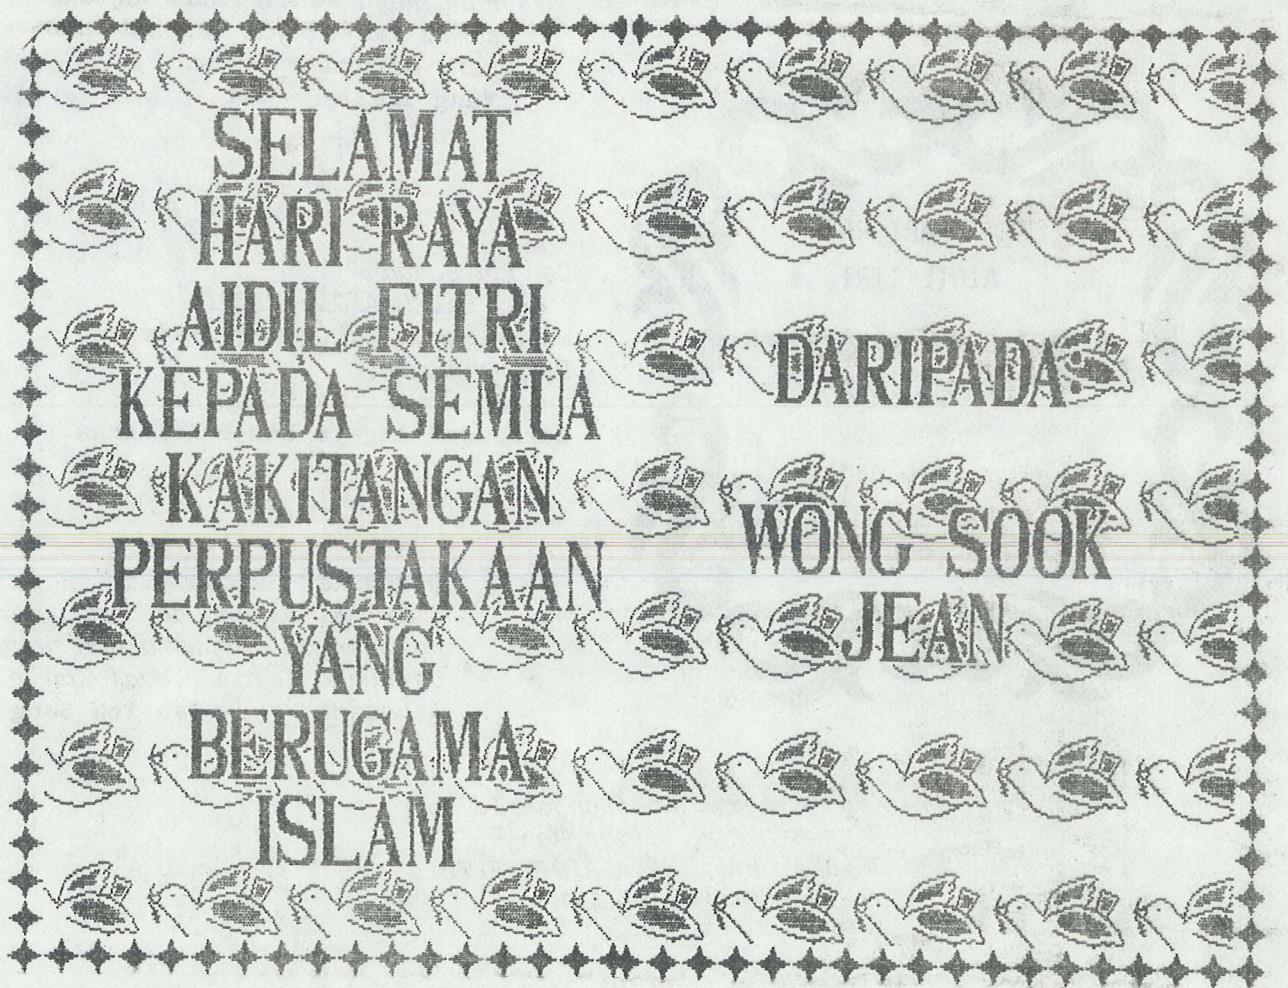 SELAMAT
HARI RAYA
AIDIL FITRI
KEPADA SEMUA
KAKITANGAN
PERPUSTAKAAN
YANG
BERUGAMA
ISLAM
DARIPADA:
WONG SOOK
JEAN